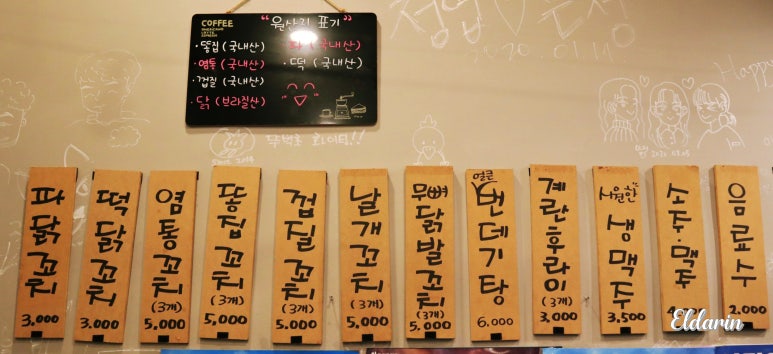 COFFEE
"원산지 표기"
·똥집 (국내산)
·파 (국내산)
·염통 (국내산)
·떡 (국내산)
·껍질 (국내산)
·닭 (브라질산)
2020. 01
Happy
파닭꼬치
3,000
떡닭꼬치
3,000
염통꼬치
(3개)
5,000
똥집꼬치
(3개)
5,000
껍질꼬치
(3개)
5,000
날개꼬치
(3개)
5,000
무뼈닭발꼬치
(3개)
5,000
얼큰
번데기탕
6,000
계란후라이
(3개)
3,000
시원한
생맥주
3,500
소주·맥주
음료수
2,000
Eldarin